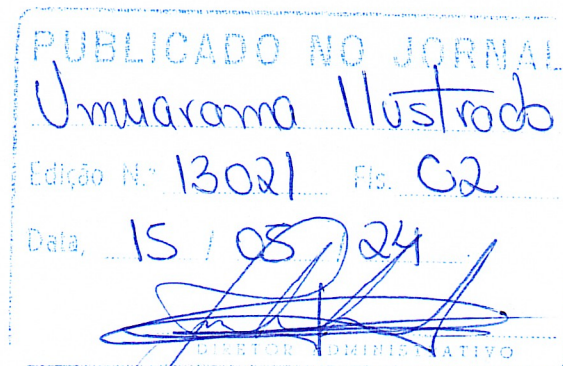 PUBLICADO NO JORNAL
Umuarama Ilustrado
Edição N.º 13021 Fls. C2
Data, 15 / 05 / 24
DIRETOR ADMINISTRATIVO